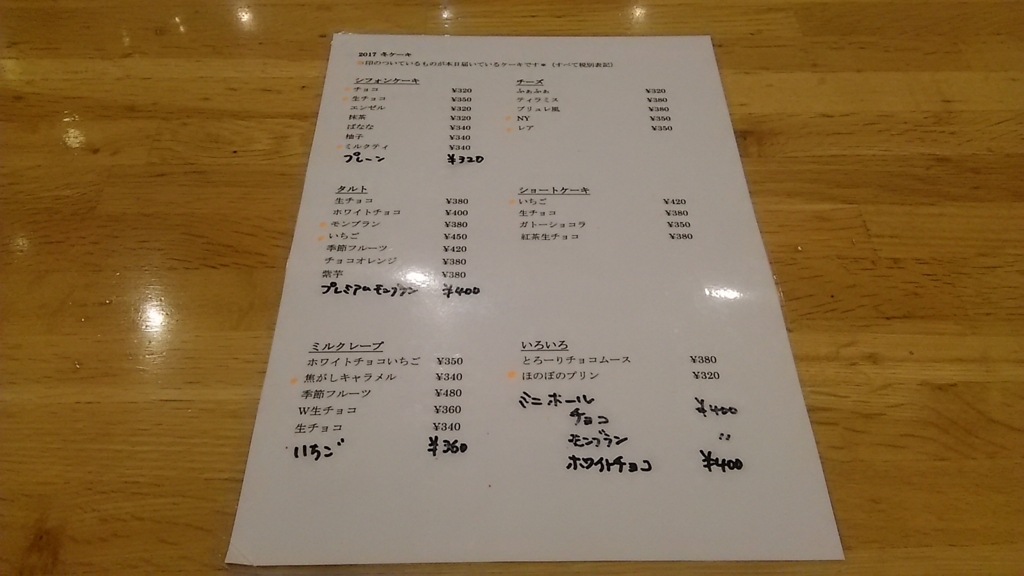 2017 冬ケーキ
印のついているものが本日届いているケーキです＊（すべて税別表記）
シフォンケーキ
チョコ ¥320
生チョコ ¥350
エンゼル ¥320
抹茶 ¥320
ばなな ¥340
柚子 ¥340
ミルクティ ¥340
プレーン ¥320
チーズ
ふぁふぁ ¥320
ティラミス ¥380
ブリュレ風 ¥380
NY ¥350
レア ¥350
タルト
生チョコ ¥380
ホワイトチョコ ¥400
モンブラン ¥380
いちご ¥450
季節フルーツ ¥420
チョコオレンジ ¥380
紫芋 ¥380
プレミアムモンブラン ¥400
ショートケーキ
いちご ¥420
生チョコ ¥380
ガトーショコラ ¥350
紅茶生チョコ ¥380
ミルクレープ
ホワイトチョコいちご ¥350
焦がしキャラメル ¥340
季節フルーツ ¥480
W生チョコ ¥360
生チョコ ¥340
いちご ¥360
いろいろ
とろーりチョコムース ¥380
ほのぼのプリン ¥320
ミニホール
チョコ ¥400
モンブラン 〃
ホワイトチョコ ¥400